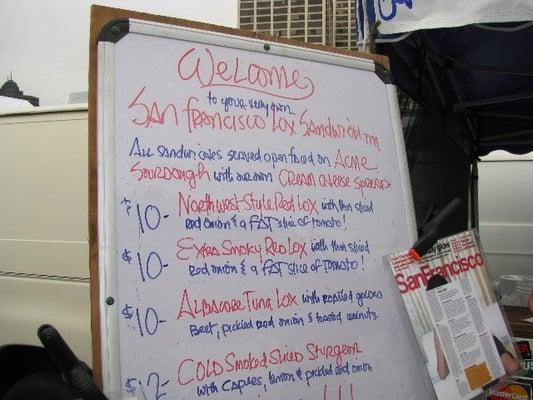 Welcome
to your very own
San Francisco Lox Sandwich™
All sandwiches served open faced on Acme
Sourdough with our own Cream Cheese Spread
$10- Northwest Style Red Lox with thin sliced
red onion & a FAT slice of tomato!
$10- Extra Smoky Red Lox with thin sliced
red onion & a FAT slice of tomato!
$10- Albacore Tuna Lox with roasted golden
Beet, pickled red onion & toasted walnuts.
$12- Cold Smoked Sliced Sturgeon
with capers, lemon & pickled red onion
San Francisco
MasterCard